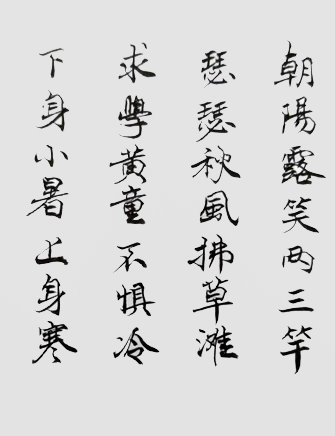 朝陽露笑兩三竿
瑟瑟秋風拂草灘
求學黃童不懼冷
下身小暑上身寒